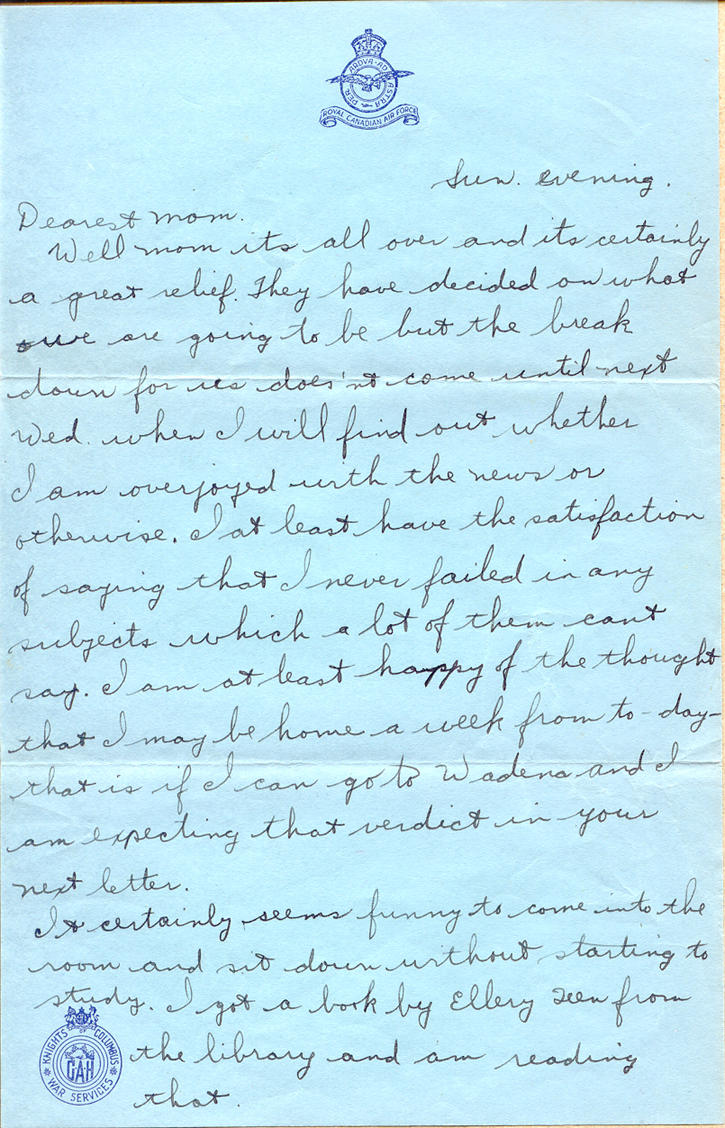 PER ARDVA AD ASTRA
ROYAL CANADIAN AIR FORCE
Sun. evening.
Dearest mom.
Well mom its all over and its certainly
a great relief. They have decided on what
we are going to be but the break
down for us does'nt come until next
Wed. when I will find out whether
I am overjoyed with the news or
otherwise. I at least have the satisfaction
of saying that I never failed in any
subjects which a lot of them cant
say. I am at least happy of the thought
that I may be home a week from to-day-
that is if I can go to Wadena and I
am expecting that verdict in your
next letter.
It certainly seems funny to come into the
room and sit down without starting to
study. I got a book by Ellery from
the library and am reading
that.
KNIGHTS OF COLUMBUS
CAH
WAR SERVICES